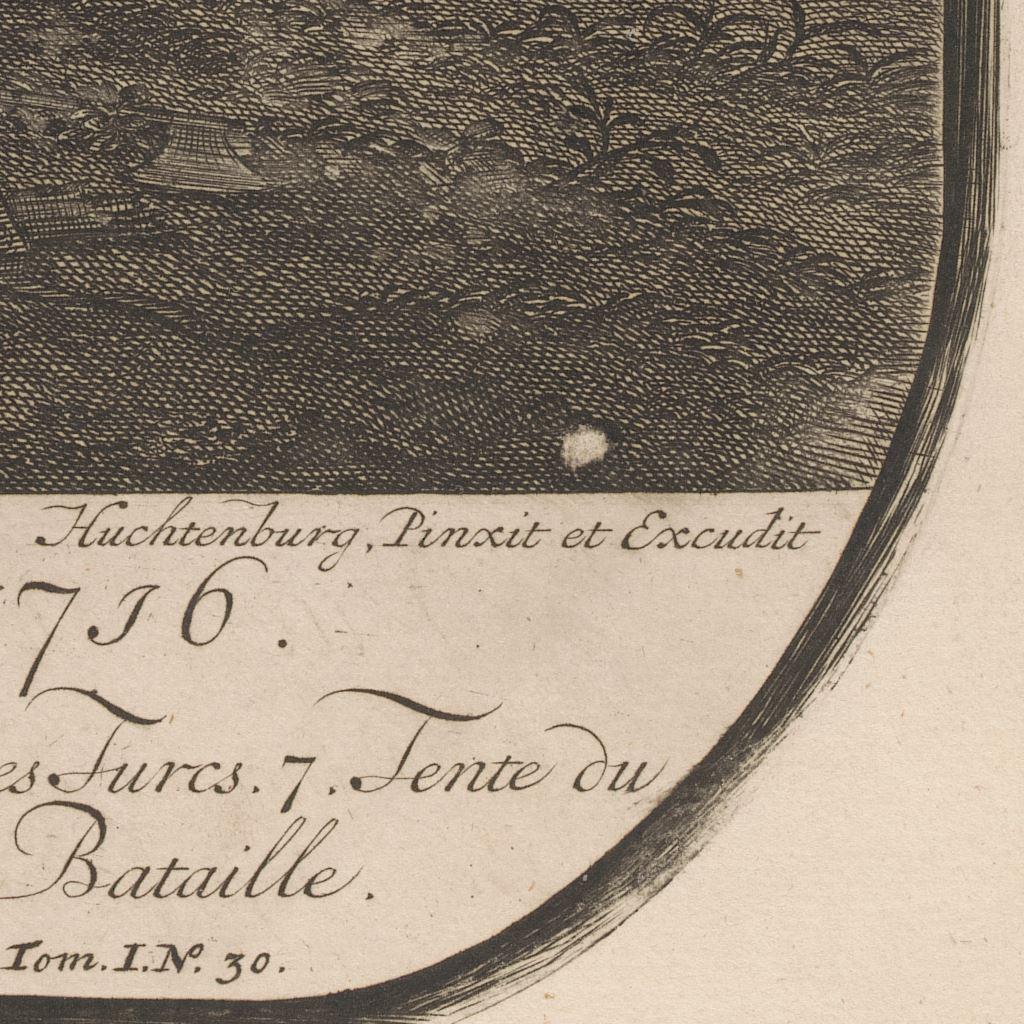 Huchtenburg, Pinxit et Excudit
1716.
es Turcs. 7. Tente du
Bataille.
Tom. I. Nº. 30.